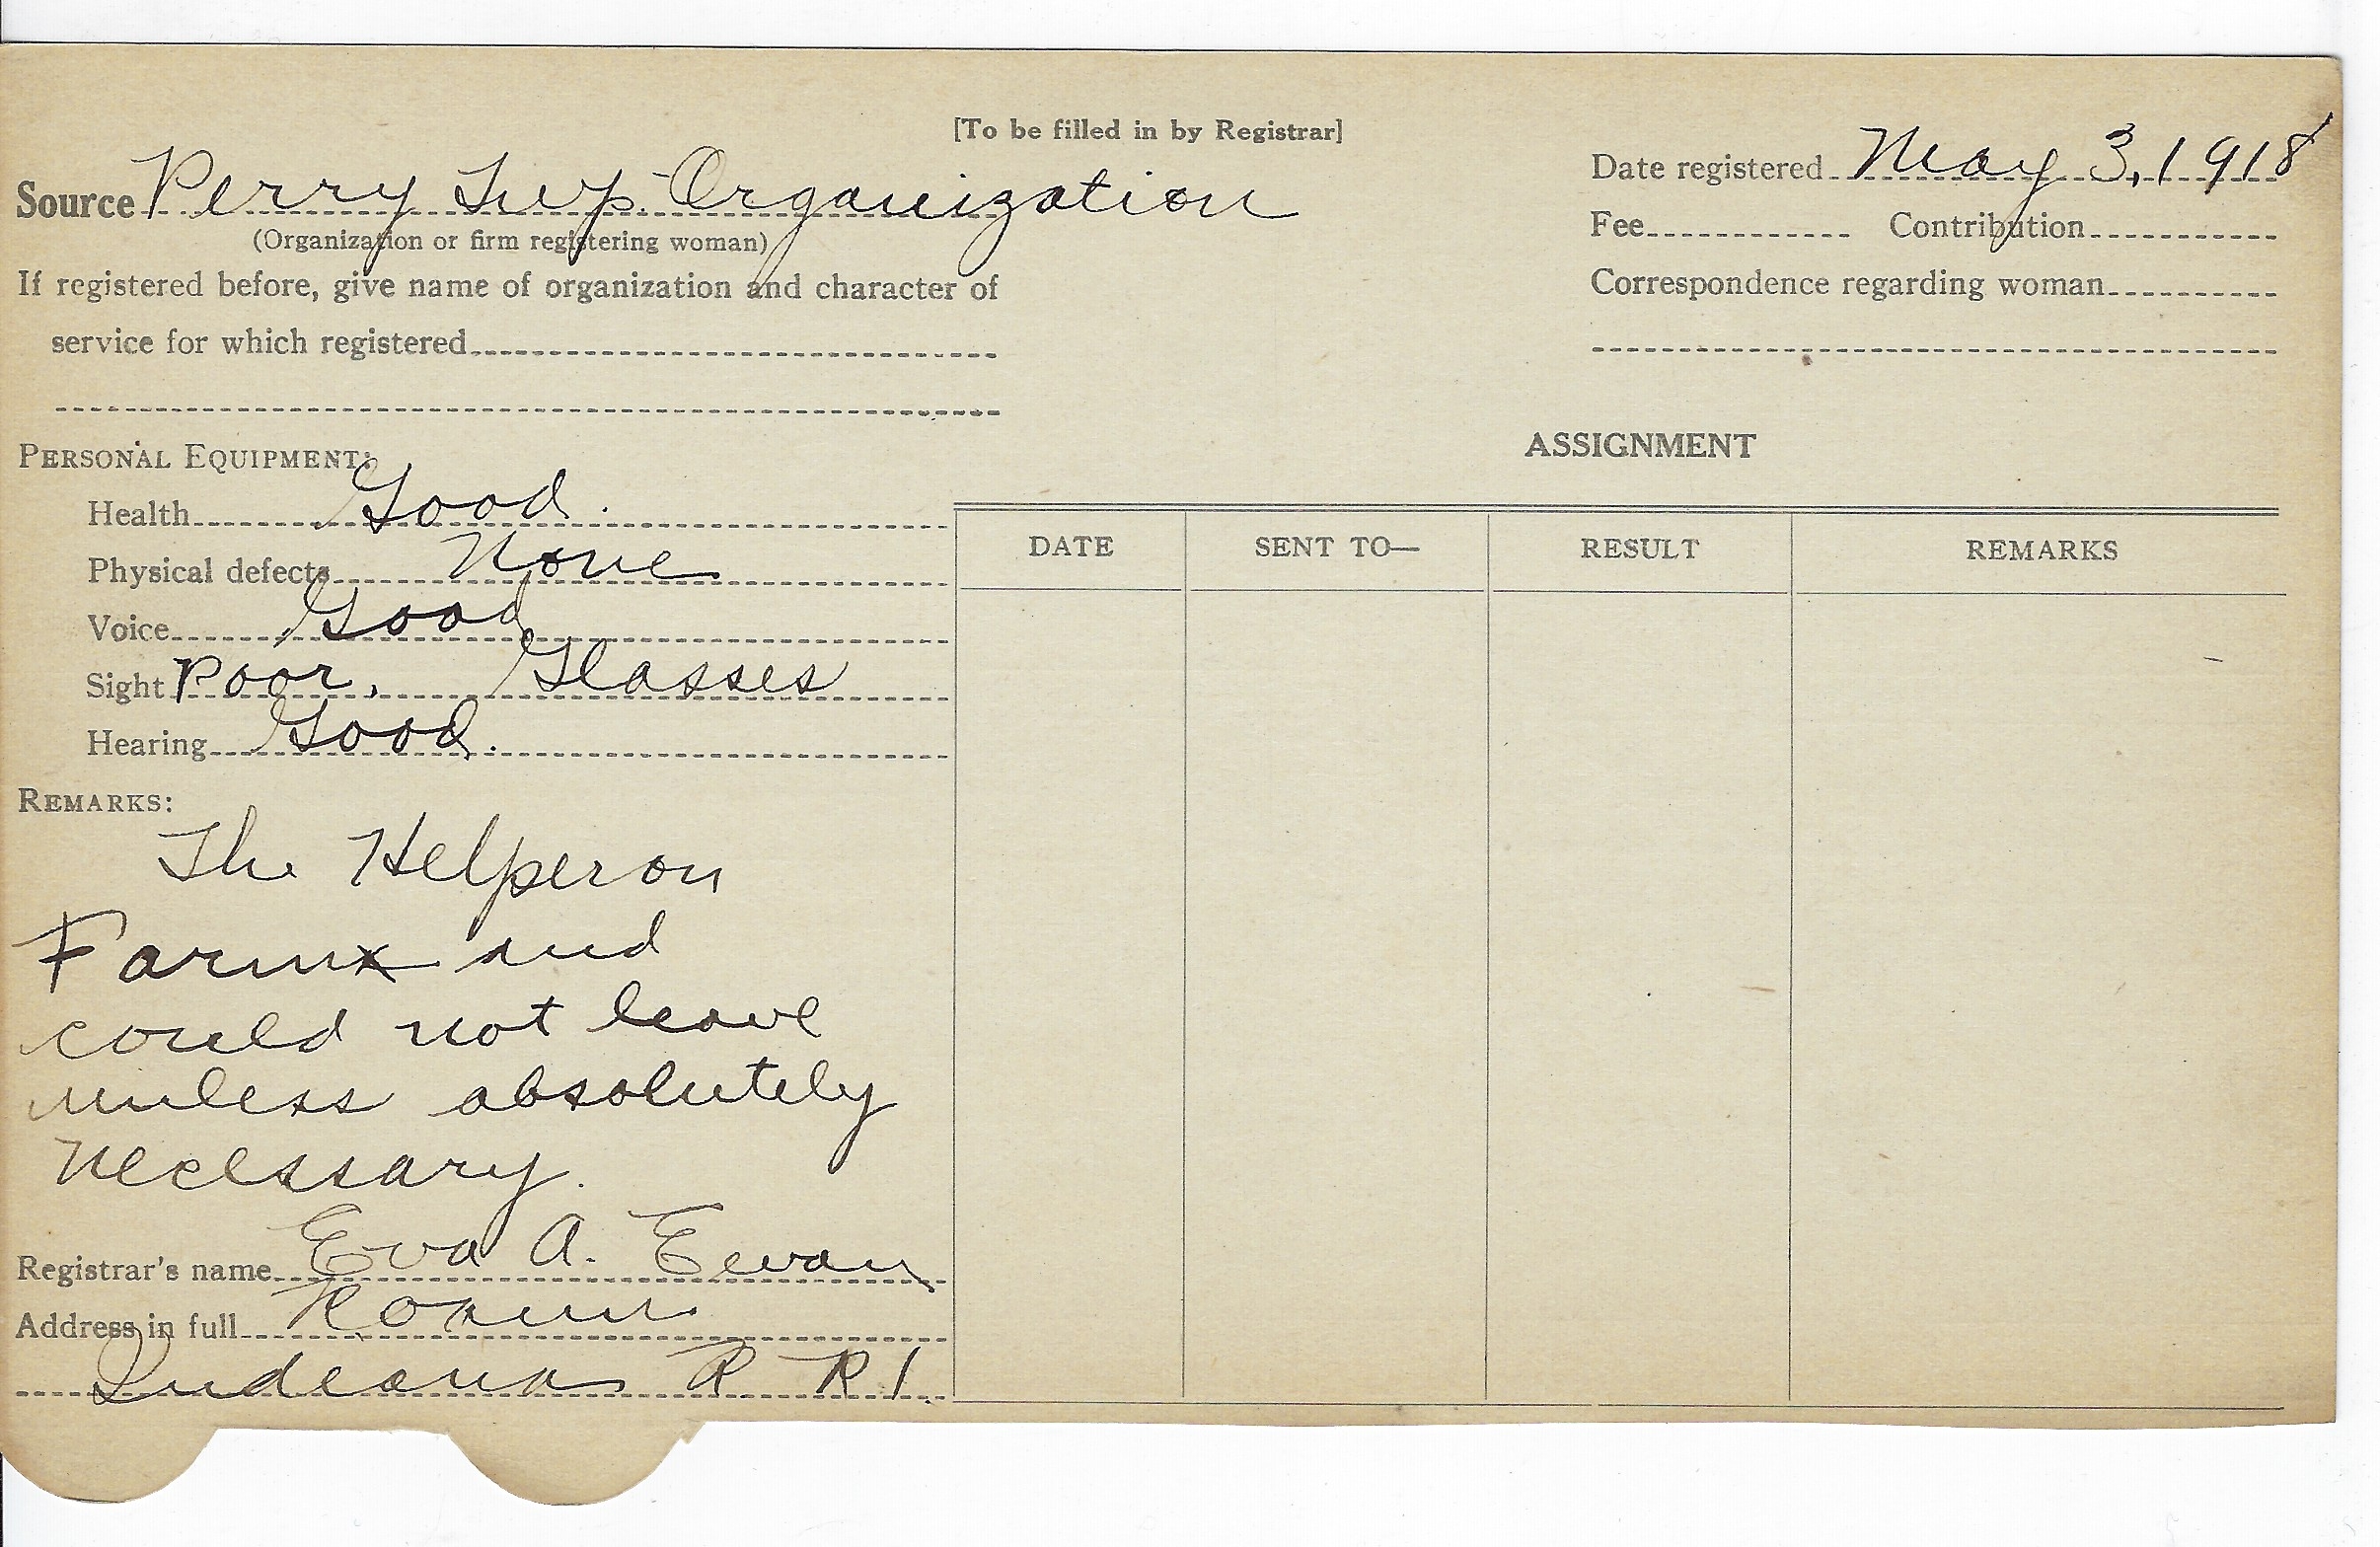 [To be filled in by Registrar]
Source Perry Twp. Organization
(Organization or firm registering woman)
If registered before, give name of organization and character of
service for which registered
Date registered May 3, 1918
Fee Contribution
Correspondence regarding woman
PERSONAL EQUIPMENT:
Health Good.
Physical defects None
Voice Good
Sight Poor. Glasses
Hearing Good.
REMARKS:
The Helper on
Farm and
could not leave
unless absolutely
necessary.
Registrar's name Eva A.
Address in full
Indiana R R 1.
ASSIGNMENT
DATE SENT TO— RESULT REMARKS